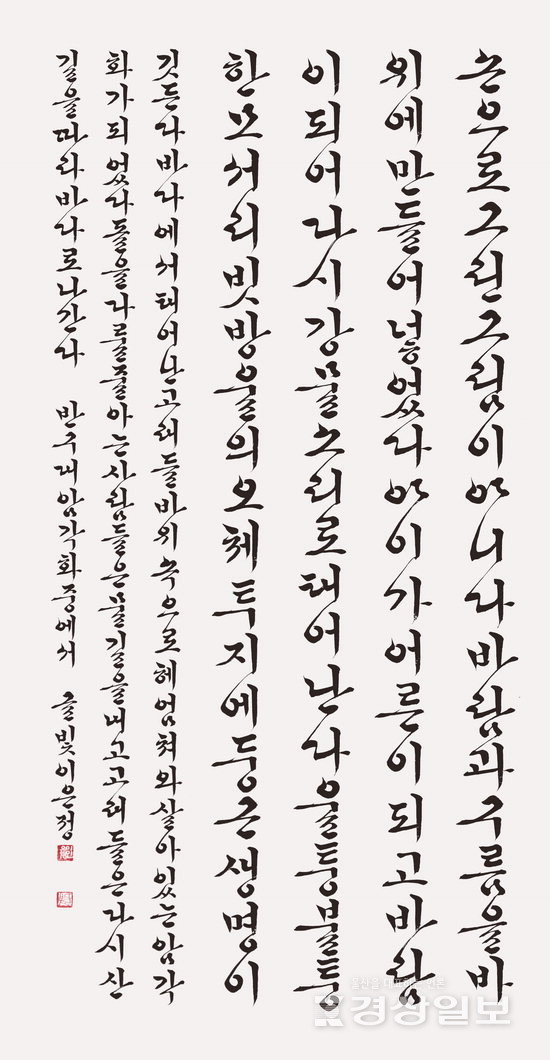 손으로그린그림이아니다바람과구름을바
위에만들어넣었다아이가어른이되고바람
이되어다시강물소리로태어난다울퉁불퉁
한모서리빗방울의오체투지에둥근생명이
깃든다바다에서태어난고래들바위속으로헤엄쳐와살아있는암각
화가되었다돌을다룰줄아는사람들은물길을내고고래들은다시산
길을따라바다로나간다 반구대암각화중에서 글빛이은정
경상일보